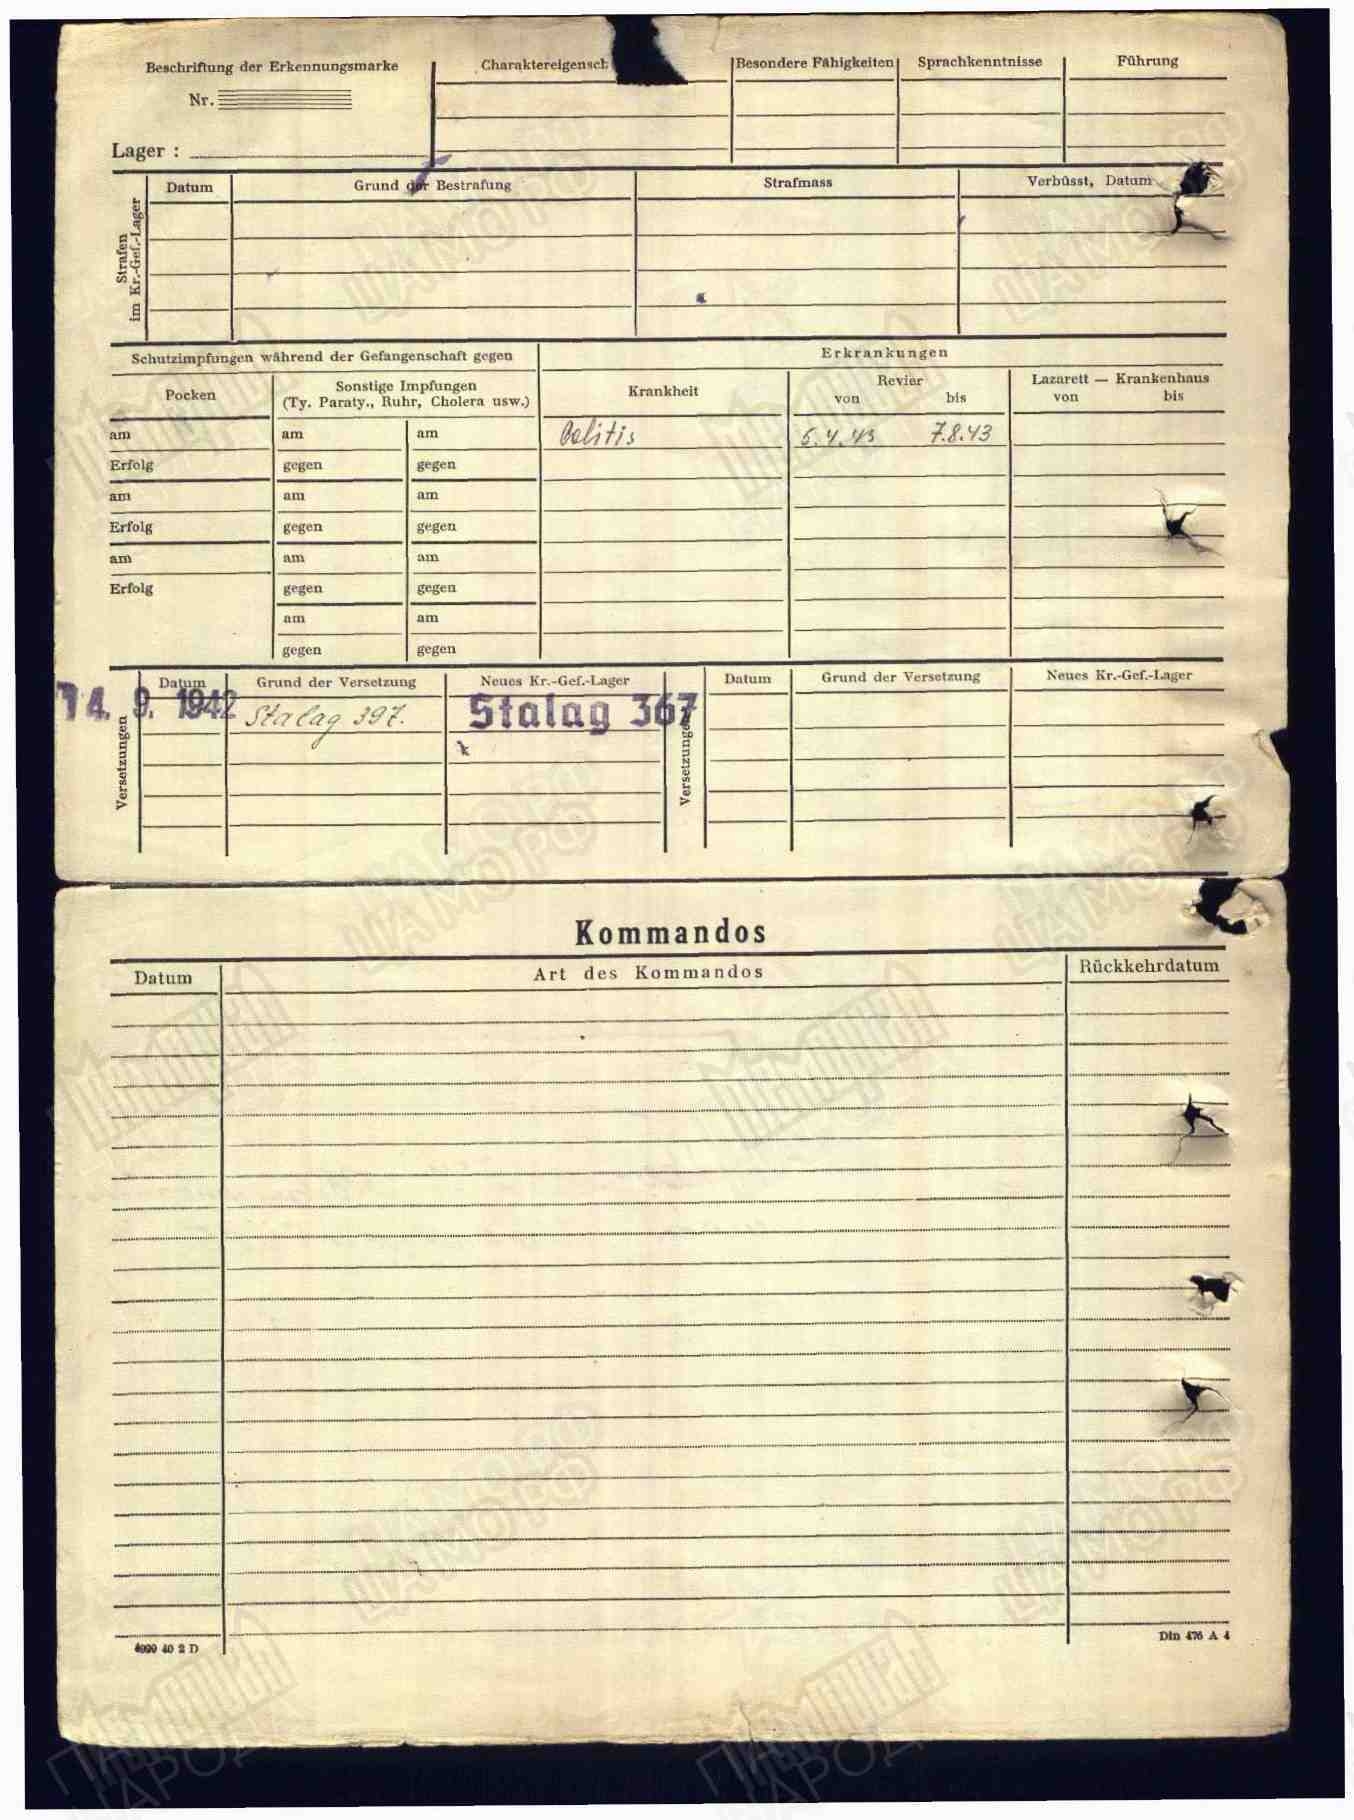 Beschriftung der Erkennungsmarke
Nr.
Lager :
Charaktereigensch
Besondere Fähigkeiten
Sprachkenntnisse
Führung
Strafen
im Kr.-Gef.-Lager
Datum
Grund der Bestrafung
Strafmass
Verbüsst, Datum
Schutzimpfungen während der Gefangenschaft gegen
Erkrankungen
Pocken
Sonstige Impfungen
(Ty. Paraty., Ruhr, Cholera usw.)
Krankheit
Revier
von bis
Lazarett — Krankenhaus
von bis
am am am Colitis 5.4.43 7.8.43
Erfolg gegen gegen
am am am
Erfolg gegen gegen
am am am
Erfolg gegen gegen
am am
gegen gegen
Versetzungen
Datum Grund der Versetzung Neues Kr.-Gef.-Lager
14. 9. 1942 Stalag 397. Stalag 367
Versetzungen
Datum Grund der Versetzung Neues Kr.-Gef.-Lager
Kommandos
Datum Art des Kommandos Rückkehrdatum
4999 40 2 D
Din 476 A 4